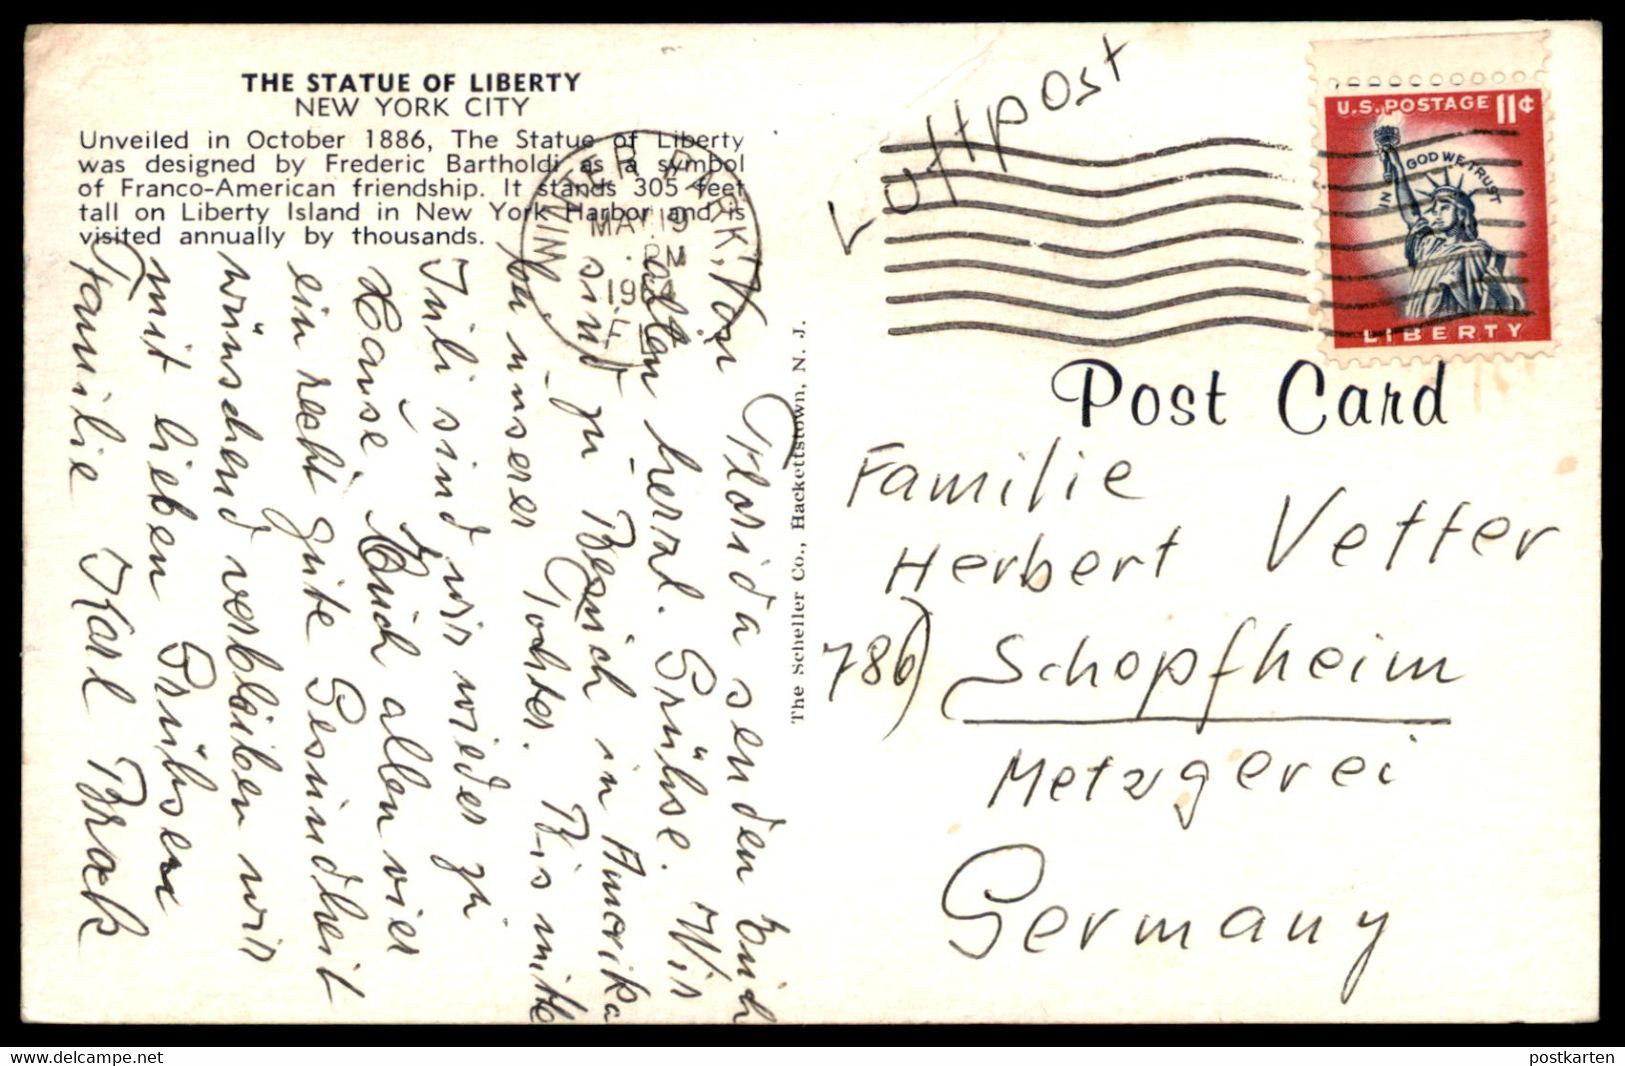 THE STATUE OF LIBERTY
NEW YORK CITY
Unveiled in October 1886, The Statue of Liberty
was designed by Frederic Bartholdi as a symbol
of Franco-American friendship. It stands 305 feet
tall on Liberty Island in New York Harbor and is
visited annually by thousands.
WINTER PARK,
MAY 19
PM
1964
Von Florida senden Euch
allen herzl. Grühse. Wir
sind zu Besuch in Amerika
bei unserer Tochter. Bis mitte
Juli sind wir wieder zu
Hause. Euch allen vier
ein recht gute Gesundheit
wünschend verbleiben wir
mit lieben Grühsen
Familie Karl Brack
The Scheller Co., Hackettstown, N. J.
Luftpost
U.S. POSTAGE 11¢
IN GOD WE TRUST
LIBERTY
Post Card
Familie
Herbert Vetter
786) Schopfheim
Metzgerei
Germany
www.delcampe.net
postkarten